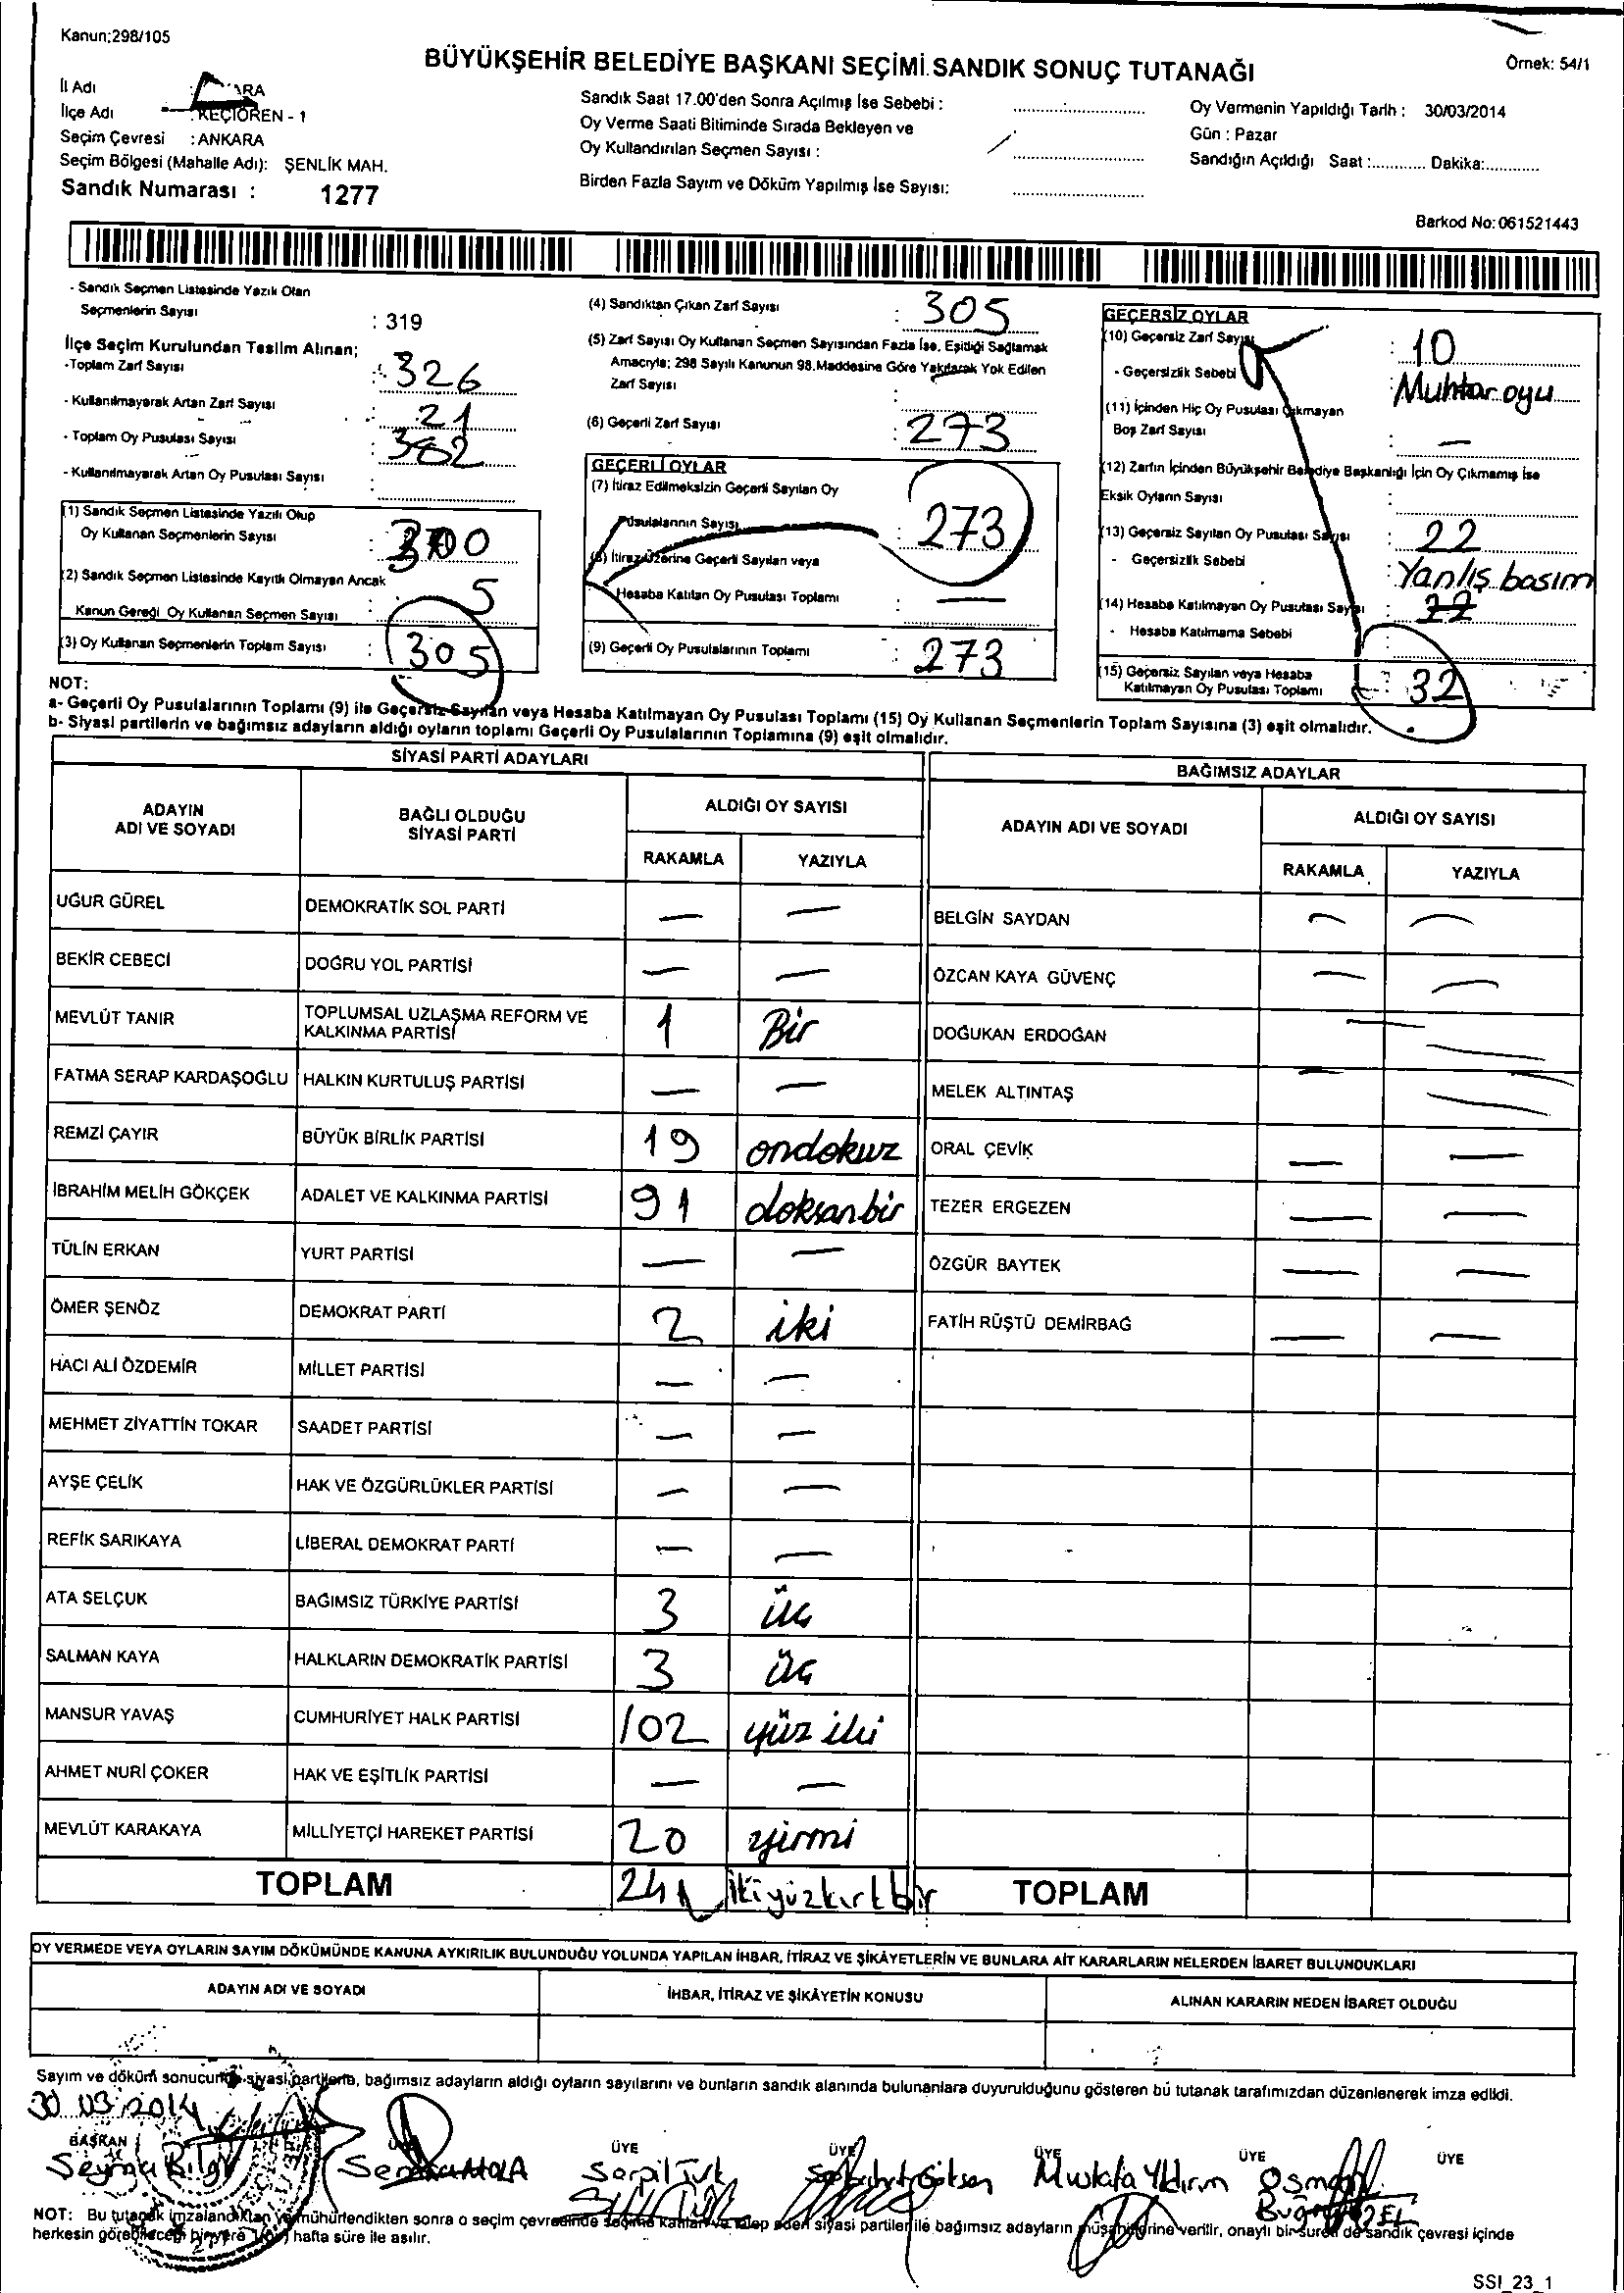 Kanun;298/105
BÜYÜKŞEHİR BELEDİYE BAŞKANI SEÇİMİ SANDIK SONUÇ TUTANAĞI
Örnek: 54/1
İl Adı : ARA
İlçe Adı : KEÇİÖREN - 1
Seçim Çevresi : ANKARA
Seçim Bölgesi (Mahalle Adı): ŞENLİK MAH.
Sandık Numarası : 1277
Sandık Saat 17.00'den Sonra Açılmış İse Sebebi :
Oy Verme Saati Bitiminde Sırada Bekleyen ve
Oy Kullandırılan Seçmen Sayısı :
Birden Fazla Sayım ve Döküm Yapılmış İse Sayısı:
Oy Vermenin Yapıldığı Tarih : 30/03/2014
Gün : Pazar
Sandığın Açıldığı Saat :............ Dakika:............
Barkod No: 061521443
- Sandık Seçmen Listesinde Yazılı Olan
Seçmenlerin Sayısı : 319
İlçe Seçim Kurulundan Teslim Alınan;
-Toplam Zarf Sayısı : 326
- Kullanılmayarak Artan Zarf Sayısı : 21
- Toplam Oy Pusulası Sayısı : 382
- Kullanılmayarak Artan Oy Pusulası Sayısı :
(1) Sandık Seçmen Listesinde Yazılı Olup
Oy Kullanan Seçmenlerin Sayısı : 300
(2) Sandık Seçmen Listesinde Kayıtlı Olmayan Ancak
Kanun Gereği Oy Kullanan Seçmen Sayısı : 5
(3) Oy Kullanan Seçmenlerin Toplam Sayısı : 305
(4) Sandıktan Çıkan Zarf Sayısı : 305
(5) Zarf Sayısı Oy Kullanan Seçmen Sayısından Fazla İse, Eşitliği Sağlamak
Amacıyla; 298 Sayılı Kanunun 98.Maddesine Göre Yakılarak Yok Edilen
Zarf Sayısı :
(6) Geçerli Zarf Sayısı : 273
GEÇERLİ OYLAR
(7) İtiraz Edilmeksizin Geçerli Sayılan Oy
Pusulalarının Sayısı : 273
(8) İtiraz Üzerine Geçerli Sayılan veya
Hesaba Katılan Oy Pusulası Toplamı : —
(9) Geçerli Oy Pusulalarının Toplamı : 273
GEÇERSİZ OYLAR
(10) Geçersiz Zarf Sayısı : 10
- Geçersizlik Sebebi : Muhtar oyu
(11) İçinden Hiç Oy Pusulası Çıkmayan
Boş Zarf Sayısı : —
(12) Zarfın İçinden Büyükşehir Belediye Başkanlığı İçin Oy Çıkmamış İse
Eksik Oyların Sayısı :
(13) Geçersiz Sayılan Oy Pusulası Sayısı : 22
- Geçersizlik Sebebi : Yanlış basım
(14) Hesaba Katılmayan Oy Pusulası Sayısı : 22
- Hesaba Katılmama Sebebi :
(15) Geçersiz Sayılan veya Hesaba
Katılmayan Oy Pusulası Toplamı : 32
NOT:
a- Geçerli Oy Pusulalarının Toplamı (9) ile Geçersiz Sayılan veya Hesaba Katılmayan Oy Pusulası Toplamı (15) Oy Kullanan Seçmenlerin Toplam Sayısına (3) eşit olmalıdır.
b- Siyasi partilerin ve bağımsız adayların aldığı oyların toplamı Geçerli Oy Pusulalarının Toplamına (9) eşit olmalıdır.
SİYASİ PARTİ ADAYLARI
ADAYIN ADI VE SOYADI
BAĞLI OLDUĞU SİYASİ PARTİ
ALDIĞI OY SAYISI
RAKAMLA YAZIYLA
UĞUR GÜREL DEMOKRATİK SOL PARTİ — —
BEKİR CEBECİ DOĞRU YOL PARTİSİ — —
MEVLÜT TANIR TOPLUMSAL UZLAŞMA REFORM VE KALKINMA PARTİSİ 1 Bir
FATMA SERAP KARDAŞOĞLU HALKIN KURTULUŞ PARTİSİ — —
REMZİ ÇAYIR BÜYÜK BİRLİK PARTİSİ 19 ondokuz
İBRAHİM MELİH GÖKÇEK ADALET VE KALKINMA PARTİSİ 91 doksanbir
TÜLİN ERKAN YURT PARTİSİ — —
ÖMER ŞENÖZ DEMOKRAT PARTİ 2 iki
HACI ALİ ÖZDEMİR MİLLET PARTİSİ — —
MEHMET ZİYATTİN TOKAR SAADET PARTİSİ — —
AYŞE ÇELİK HAK VE ÖZGÜRLÜKLER PARTİSİ — —
REFİK SARIKAYA LİBERAL DEMOKRAT PARTİ — —
ATA SELÇUK BAĞIMSIZ TÜRKİYE PARTİSİ 3 üç
SALMAN KAYA HALKLARIN DEMOKRATİK PARTİSİ 3 üç
MANSUR YAVAŞ CUMHURİYET HALK PARTİSİ 102 yüz iki
AHMET NURİ ÇOKER HAK VE EŞİTLİK PARTİSİ — —
MEVLÜT KARAKAYA MİLLİYETÇİ HAREKET PARTİSİ 20 yirmi
TOPLAM 241 ikiyüzkırkbir
BAĞIMSIZ ADAYLAR
ADAYIN ADI VE SOYADI
ALDIĞI OY SAYISI
RAKAMLA YAZIYLA
BELGİN SAYDAN — —
ÖZCAN KAYA GÜVENÇ — —
DOĞUKAN ERDOĞAN — —
MELEK ALTINTAŞ — —
ORAL ÇEVİK — —
TEZER ERGEZEN — —
ÖZGÜR BAYTEK — —
FATİH RÜŞTÜ DEMİRBAĞ — —
TOPLAM
OY VERMEDE VEYA OYLARIN SAYIM DÖKÜMÜNDE KANUNA AYKIRILIK BULUNDUĞU YOLUNDA YAPILAN İHBAR, İTİRAZ VE ŞİKÂYETLERİN VE BUNLARA AİT KARARLARIN NELERDEN İBARET BULUNDUKLARI
ADAYIN ADI VE SOYADI
İHBAR, İTİRAZ VE ŞİKÂYETİN KONUSU
ALINAN KARARIN NEDEN İBARET OLDUĞU
Sayım ve döküm sonucunda siyasi partilerin, bağımsız adayların aldığı oyların sayılarını ve bunların sandık alanında bulunanlara duyurulduğunu gösteren bu tutanak tarafımızdan düzenlenerek imza edildi.
30.03.2014
BAŞKAN ÜYE ÜYE ÜYE ÜYE ÜYE
Serpil Mustafa Yıldırım Osman
NOT: Bu tutanak imzalandıktan ve mühürlendikten sonra o seçim çevresinde seçime katılan ve talep eden siyasi partiler ile bağımsız adayların müşahitlerine verilir, onaylı bir sureti de sandık çevresi içinde
herkesin görebileceği bir yere bir hafta süre ile asılır.
SSI_23_1